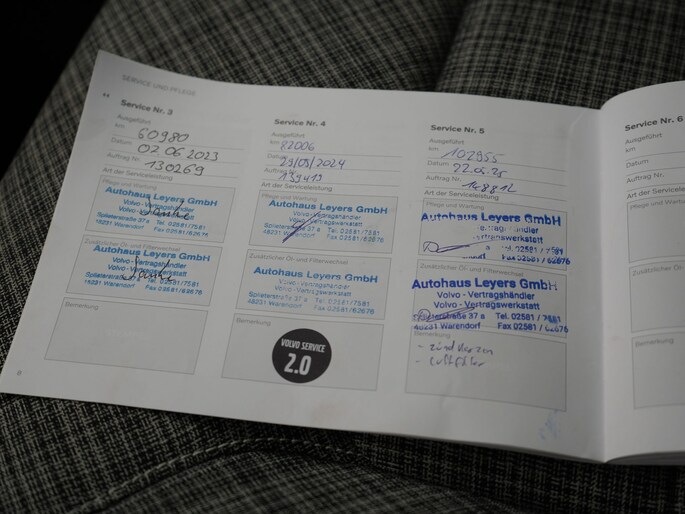 SERVICE UND PFLEGE
Service Nr. 3
Ausgeführt
km 60980
Datum 02 06 2023
Auftrag Nr. 130269
Art der Serviceleistung
Pflege und Wartung
Autohaus Leyers GmbH
Volvo - Vertragshändler
Volvo - Vertragswerkstatt
Splieterstraße 37 a Tel. 02581/7581
48231 Warendorf Fax 02581/62676
Zusätzlicher Öl- und Filterwechsel
Autohaus Leyers GmbH
Volvo - Vertragshändler
Volvo - Vertragswerkstatt
Splieterstraße 37 a Tel. 02581/7581
48231 Warendorf Fax 02581/62676
Bemerkung
8
Service Nr. 4
Ausgeführt
km 82006
Datum
Auftrag Nr. 139419
Art der Serviceleistung
Pflege und Wartung
Autohaus Leyers GmbH
Volvo - Vertragshändler
Volvo - Vertragswerkstatt
Splieterstraße 37 a Tel. 02581/7581
48231 Warendorf Fax 02581/62676
Zusätzlicher Öl- und Filterwechsel
Autohaus Leyers GmbH
Volvo - Vertragshändler
Volvo - Vertragswerkstatt
Splieterstraße 37 a Tel. 02581/7581
48231 Warendorf Fax 02581/62676
Bemerkung
VOLVO SERVICE
2.0
Service Nr. 5
Ausgeführt
km 102955
Datum 22.05.25
Auftrag Nr.
Art der Serviceleistung
Pflege und Wartung
Autohaus Leyers GmbH
Tel. 02581 / 7581
48231 Warendorf Fax 02581 / 62676
Zusätzlicher Öl- und Filterwechsel
Autohaus Leyers GmbH
Volvo - Vertragshändler
Volvo - Vertragswerkstatt
37 a Tel. 02581 / 7581
48231 Warendorf Fax 02581 / 62676
Bemerkung
- Zündkerzen
- Luftfilter
Service Nr. 6
Ausgeführt
km
Datum
Auftrag Nr.
Art der Serviceleistung
Pflege und Wartung
Zusätzlicher Öl- und
Bemerkung